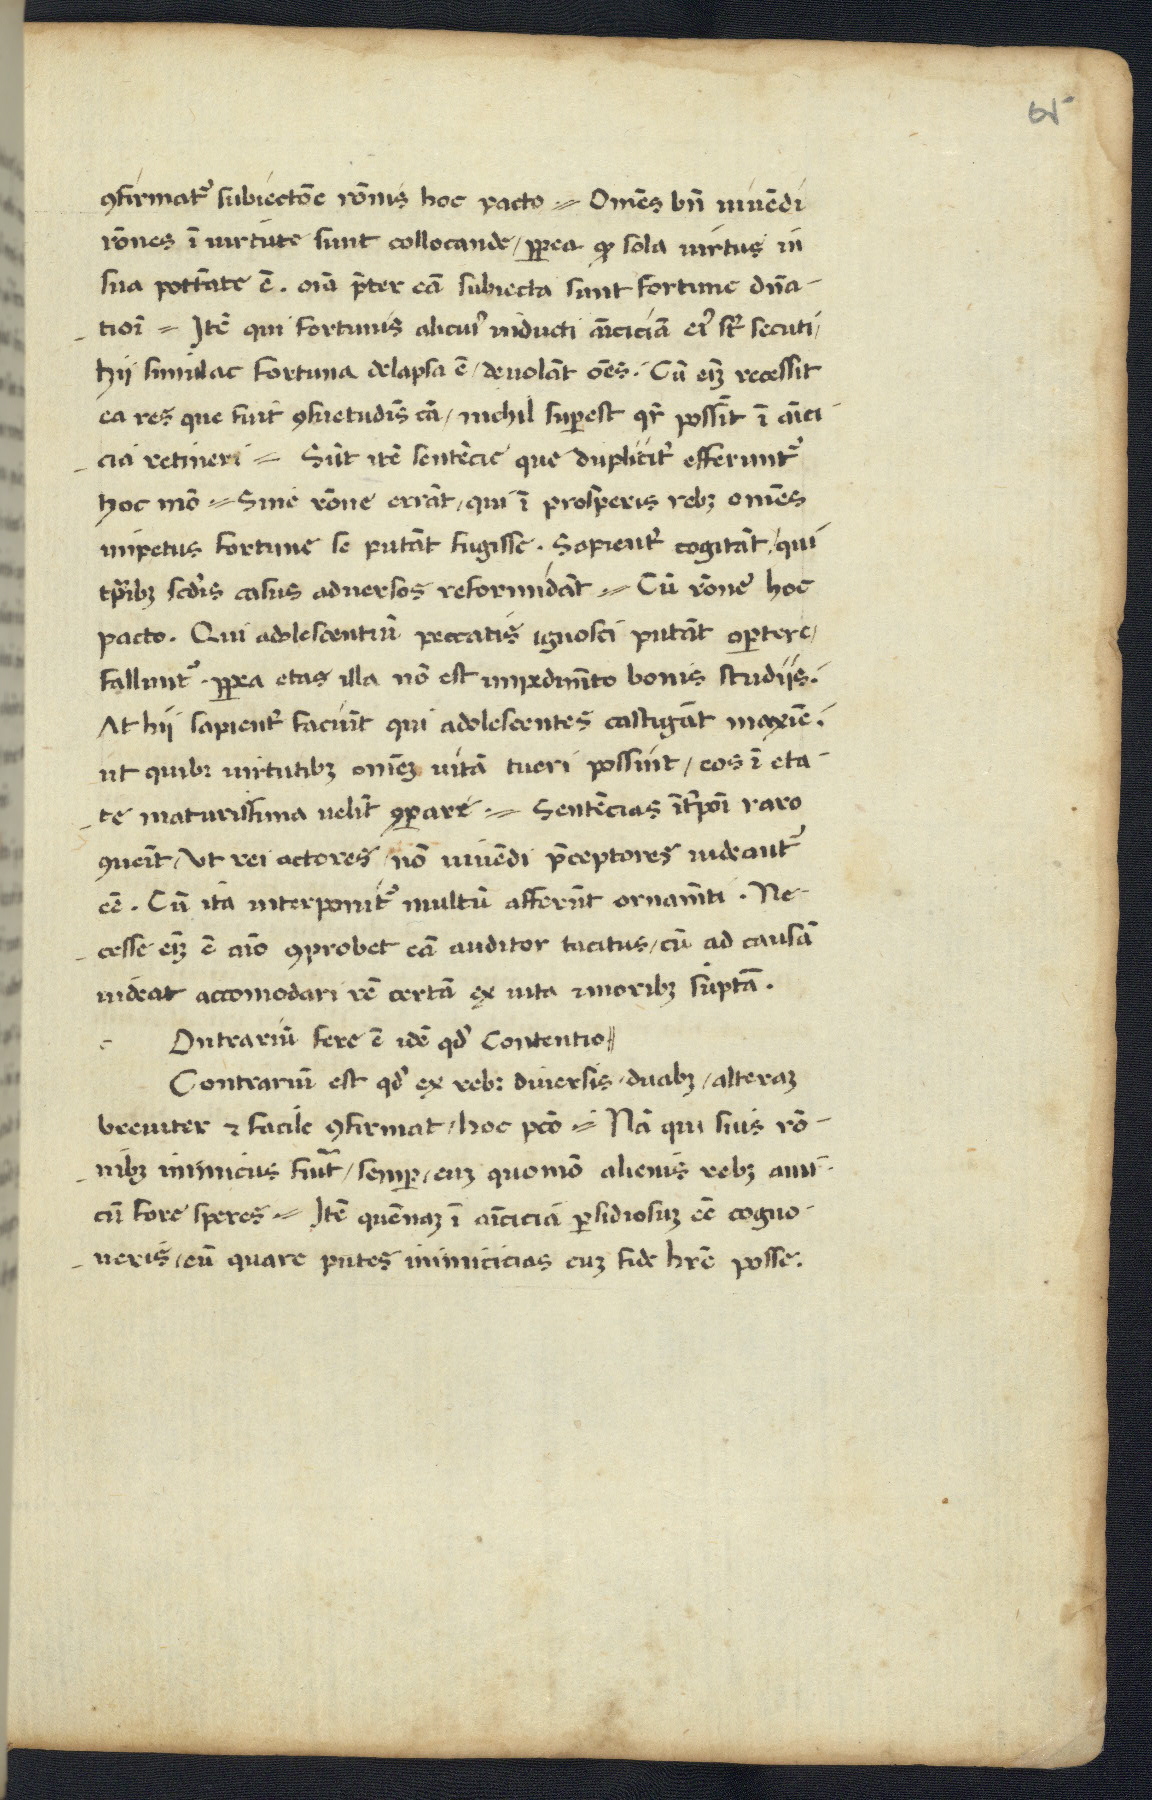 65
ꝯfirmatᷣ subiectōe rōnis hoc pacto Om̄es bn̄ uiuēdi
rōnes ī uirtute sunt collocande / ꝓpea ꝙ sola uirtus in
sua pott̄ate ē . oīa p̄ter eā subiecta sunt fortune dn̄a-
tioī Itē qui fortunis alicuiꝰ inducti aīciciā eiꝰ st̄ secuti /
hij simulac fortuna delapsa ē / deuolāt oēs . Cū eīꝫ recessit
ea res que fuit ꝯsuetudīs cā / nichil suꝑest qr̄ possīt ī aīci
cia retineri Sūt itē sentēcie que duplicit᷑ efferuntᷣ
hoc mō Sine rōne errāt / qui ī prosꝑis rebꝫ om̄es
impetus fortune se putāt fugisse . Sapient᷑ cogitāt / qui
tp̄ribꝫ scd̄is casus aduersos reformidāt Cū rōne hoc
pacto . Qui adolescentiū peccatis ignosci putāt oꝑtere /
falluntᷣ . ꝓpea etas illa nō est impedim̄to bonis studijs .
At hij sapient᷑ faciūt qui adolescentes castigāt maxīe .
ut quibꝫ uirtutibꝫ om̄eꝫ uitā tueri possint / eos ī eta-
te maturissima uelīt ꝯꝑare Sentēcias īt᷑poī raro
ꝯueīt / Ut rei actores / nō uiuēdi p̄ceptores uideantᷣ
eē . Cū ita interponūtᷣ multū afferūt ornam̄ti . Ne-
cesse eīꝫ ē aīo ꝯprobet eā auditor tacitus / cū ad causā
uideat accomodari rē certā ex uita ⁊ moribꝫ sūptā .
c Ontrariū fere ē idē qd̄ Contentio
Contrariū est qd̄ ex rebꝫ diuersis duabꝫ / alteraꝫ
breuiter ⁊ facile ꝯfirmat / hoc pcō Nā qui suis rō-
nibꝫ inimicus fuīt / semꝑ / euꝫ quomō alienis rebꝫ ami-
cū fore speres Itē quēnaꝫ ī aīcicia ꝑfidiosuꝫ eē cogno-
ueris / eū quare putes inimicicias cuꝫ fide hr̄e posse .